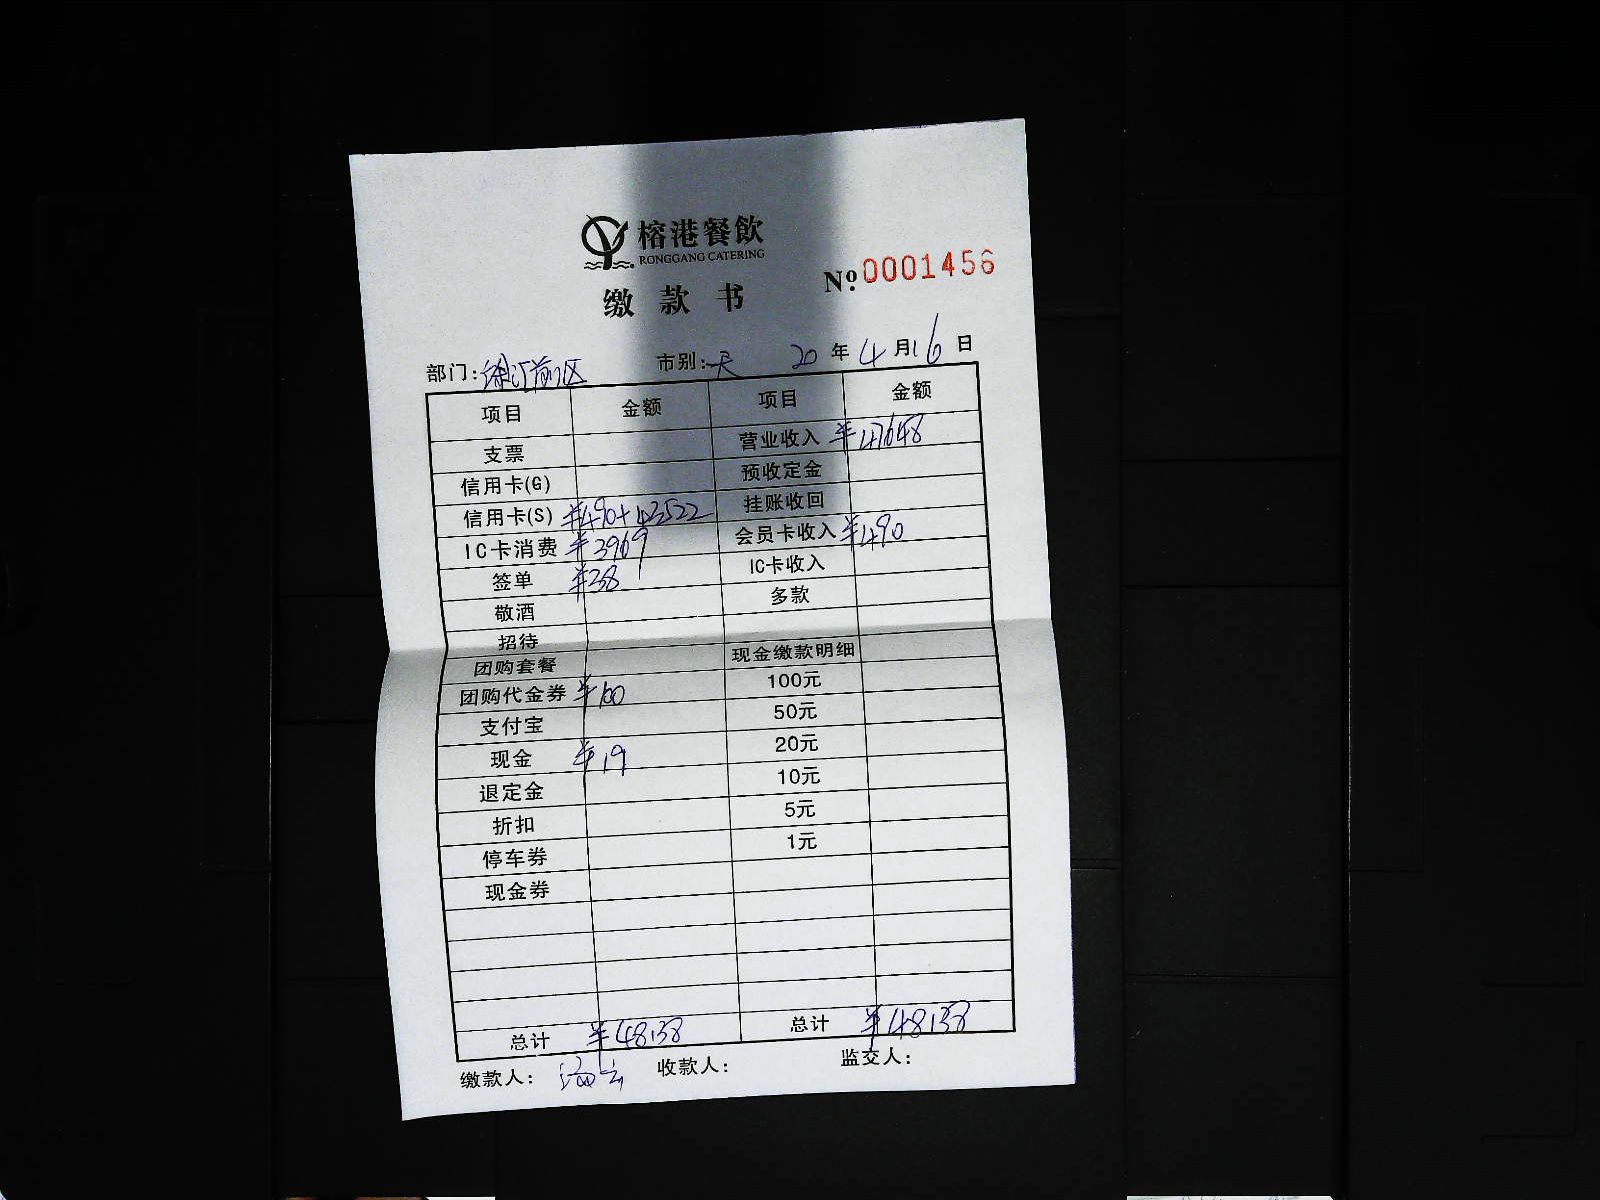 榕港餐飲
RONGGANG CATERING
缴款书
Nº 0001456
部门: 徐汇前区 市别: 天 20年4月16日
项目 金额 项目 金额
支票 营业收入 ¥47648
信用卡(G) 预收定金
信用卡(S) ¥490+43522 挂账收回
IC卡消费 ¥3969 会员卡收入 ¥490
签单 ¥38 IC卡收入
敬酒 多款
招待
团购套餐 现金缴款明细
团购代金券 ¥100 100元
支付宝 50元
现金 ¥19 20元
退定金 10元
折扣 5元
停车券 1元
现金券
总计 ¥48138 总计 ¥48138
缴款人: 收款人: 监交人: